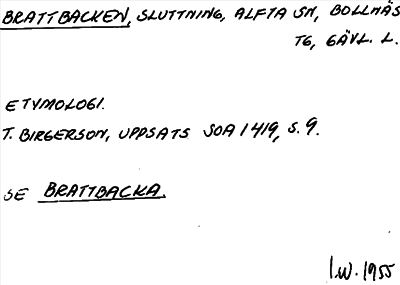 BRATTBACKEN, SLUTTNING, ALFTA SN, BOLLNÄS
TG, GÄVL. L.
ETYMOLOGI.
T. BIRGERSON, UPPSATS SOA 1419, S. 9.
SE BRATTBACKA.
I.W. 1955